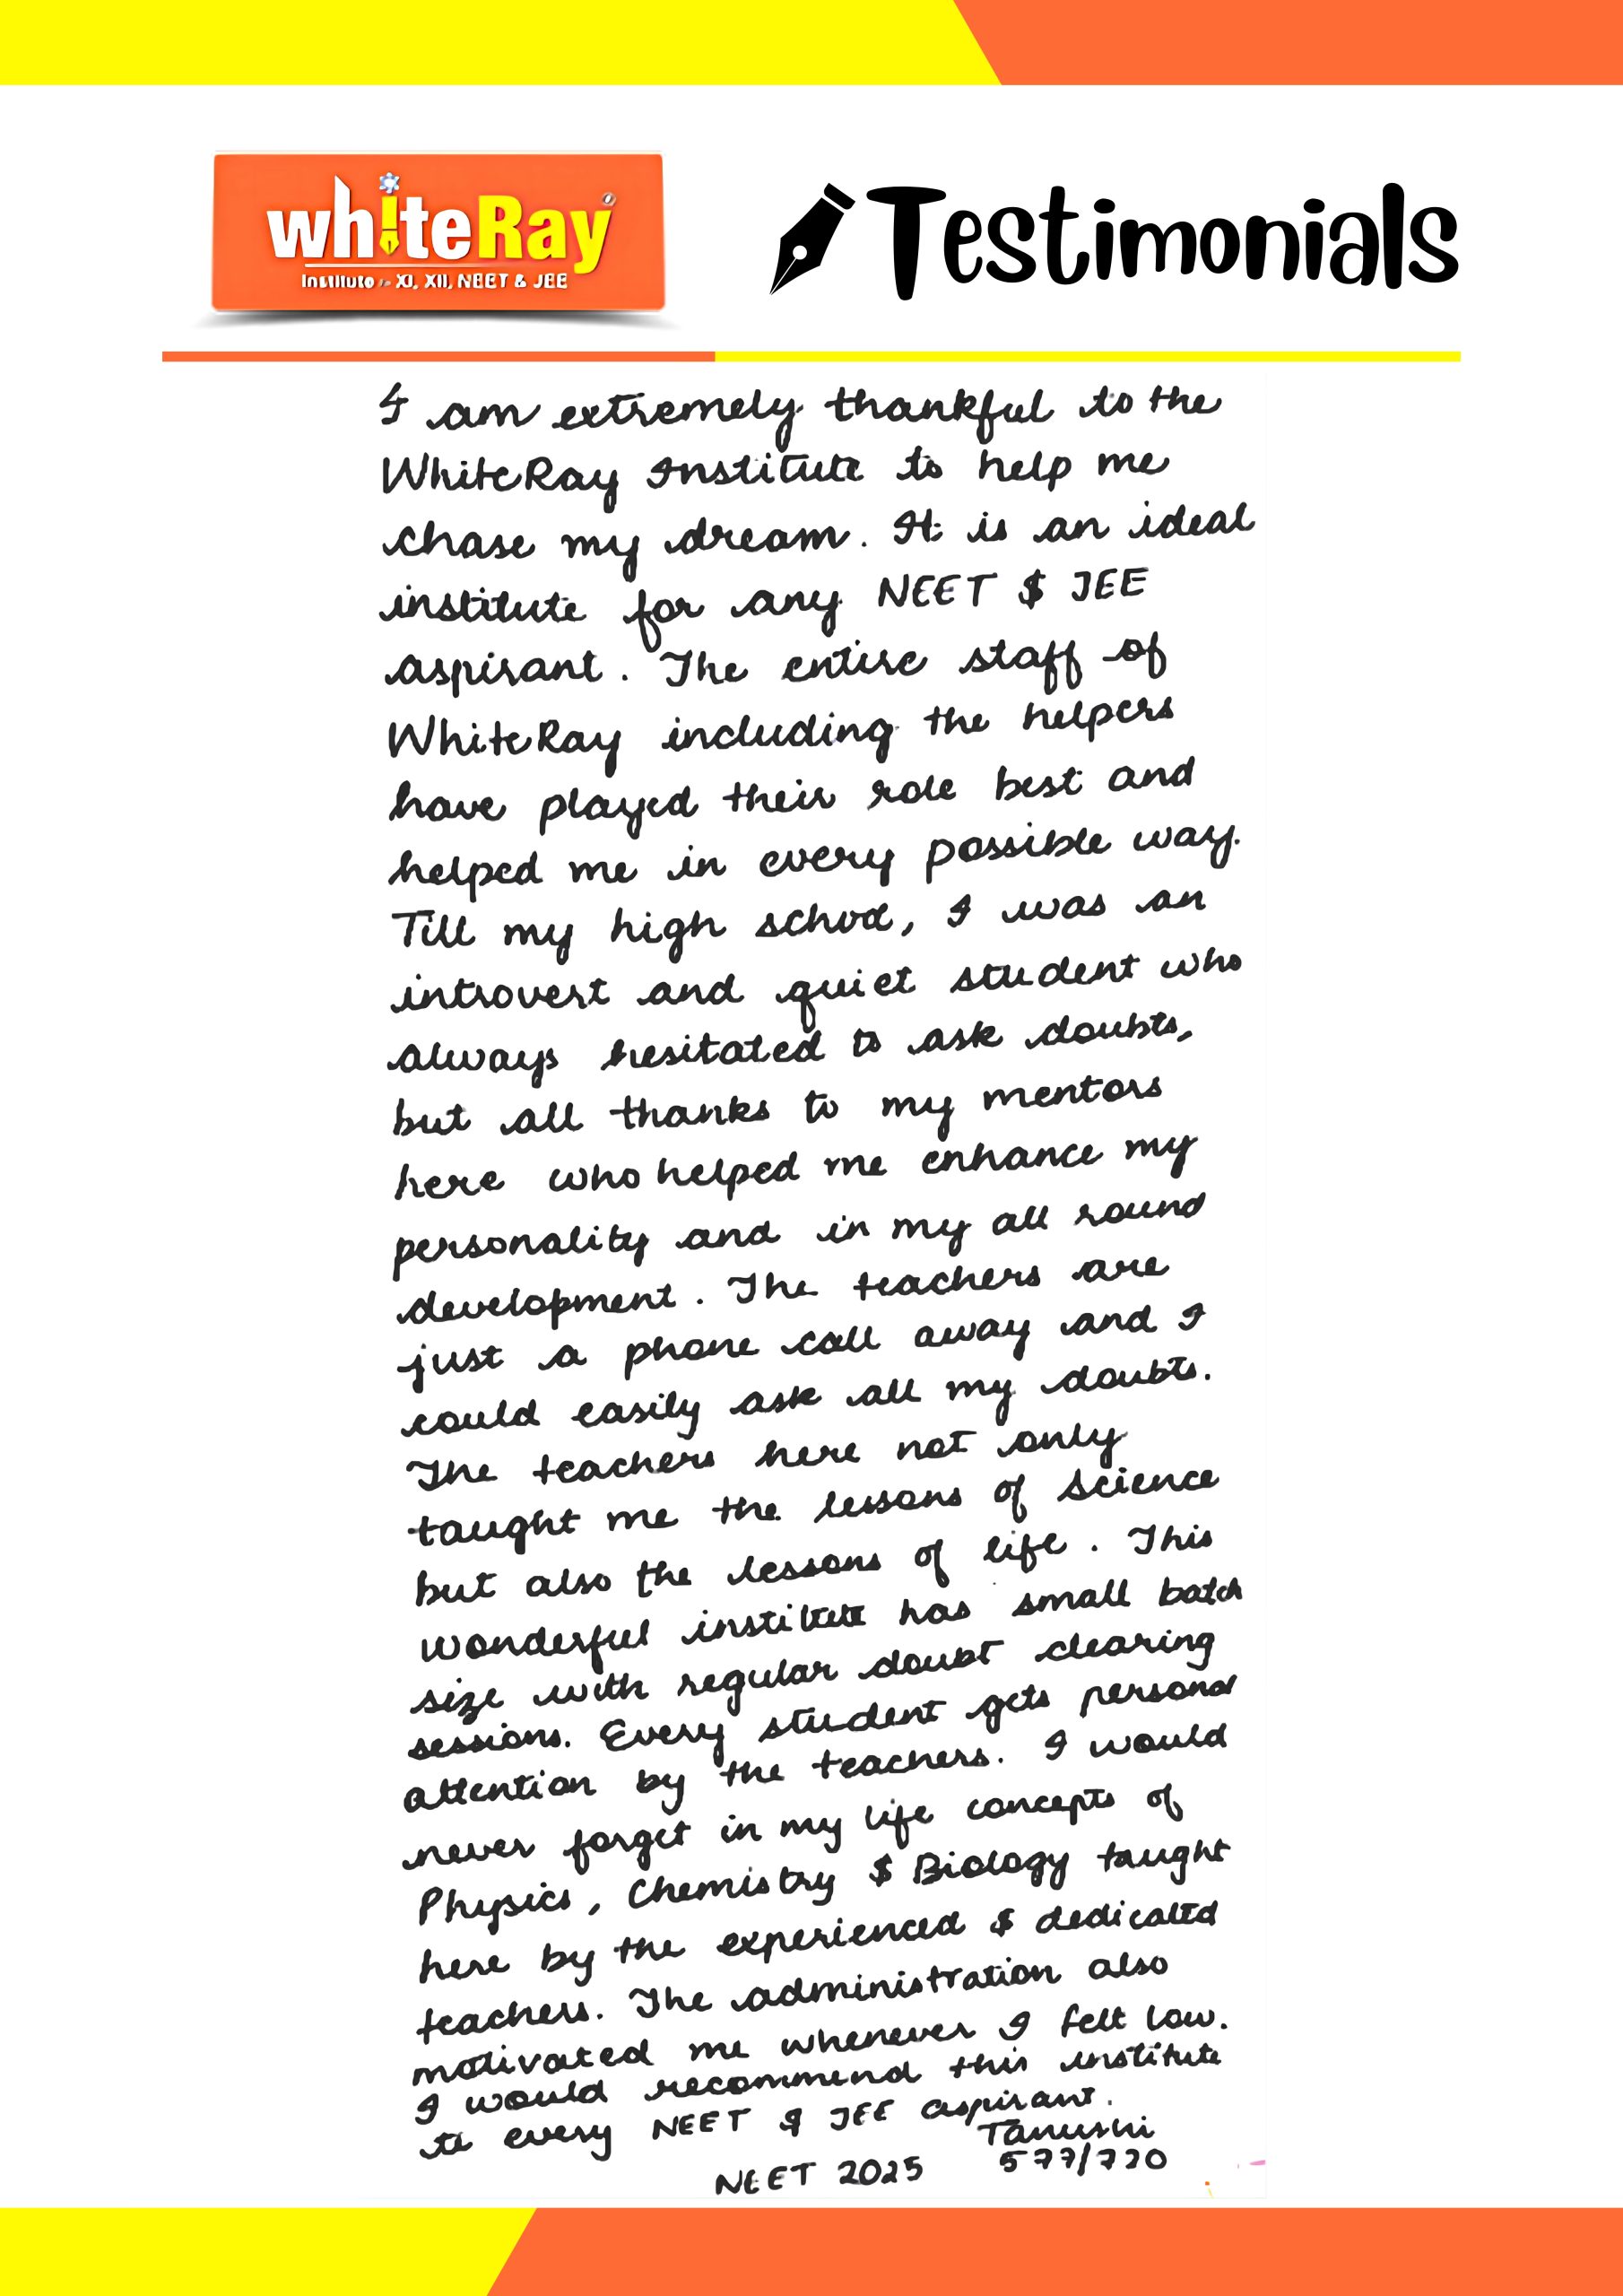 whiteRay
Institute - XI, XII, NEET & JEE
Testimonials
I am extremely thankful to the
WhiteRay Institute to help me
chase my dream. It is an ideal
institute for any NEET $ JEE
aspirant. The entire staff of
WhiteRay including the helpers
have played their role best and
helped me in every possible way.
Till my high school, I was an
introvert and quiet student who
always hesitated to ask doubts,
but all thanks to my mentors
here who helped me enhance my
personality and in my all round
development. The teachers are
just a phone call away and I
could easily ask all my doubts.
The teachers here not only
taught me the lessons of science
but also the lessons of life. This
wonderful institute has small batch
size with regular doubt clearing
sessions. Every student gets personal
attention by the teachers. I would
never forget in my life concepts of
Physics, Chemistry $ Biology taught
here by the experienced $ dedicated
teachers. The administration also
motivated me whenever I felt low.
I would recommend this institute
to every NEET & JEE aspirant.
Tanushi
577/720
NEET 2025